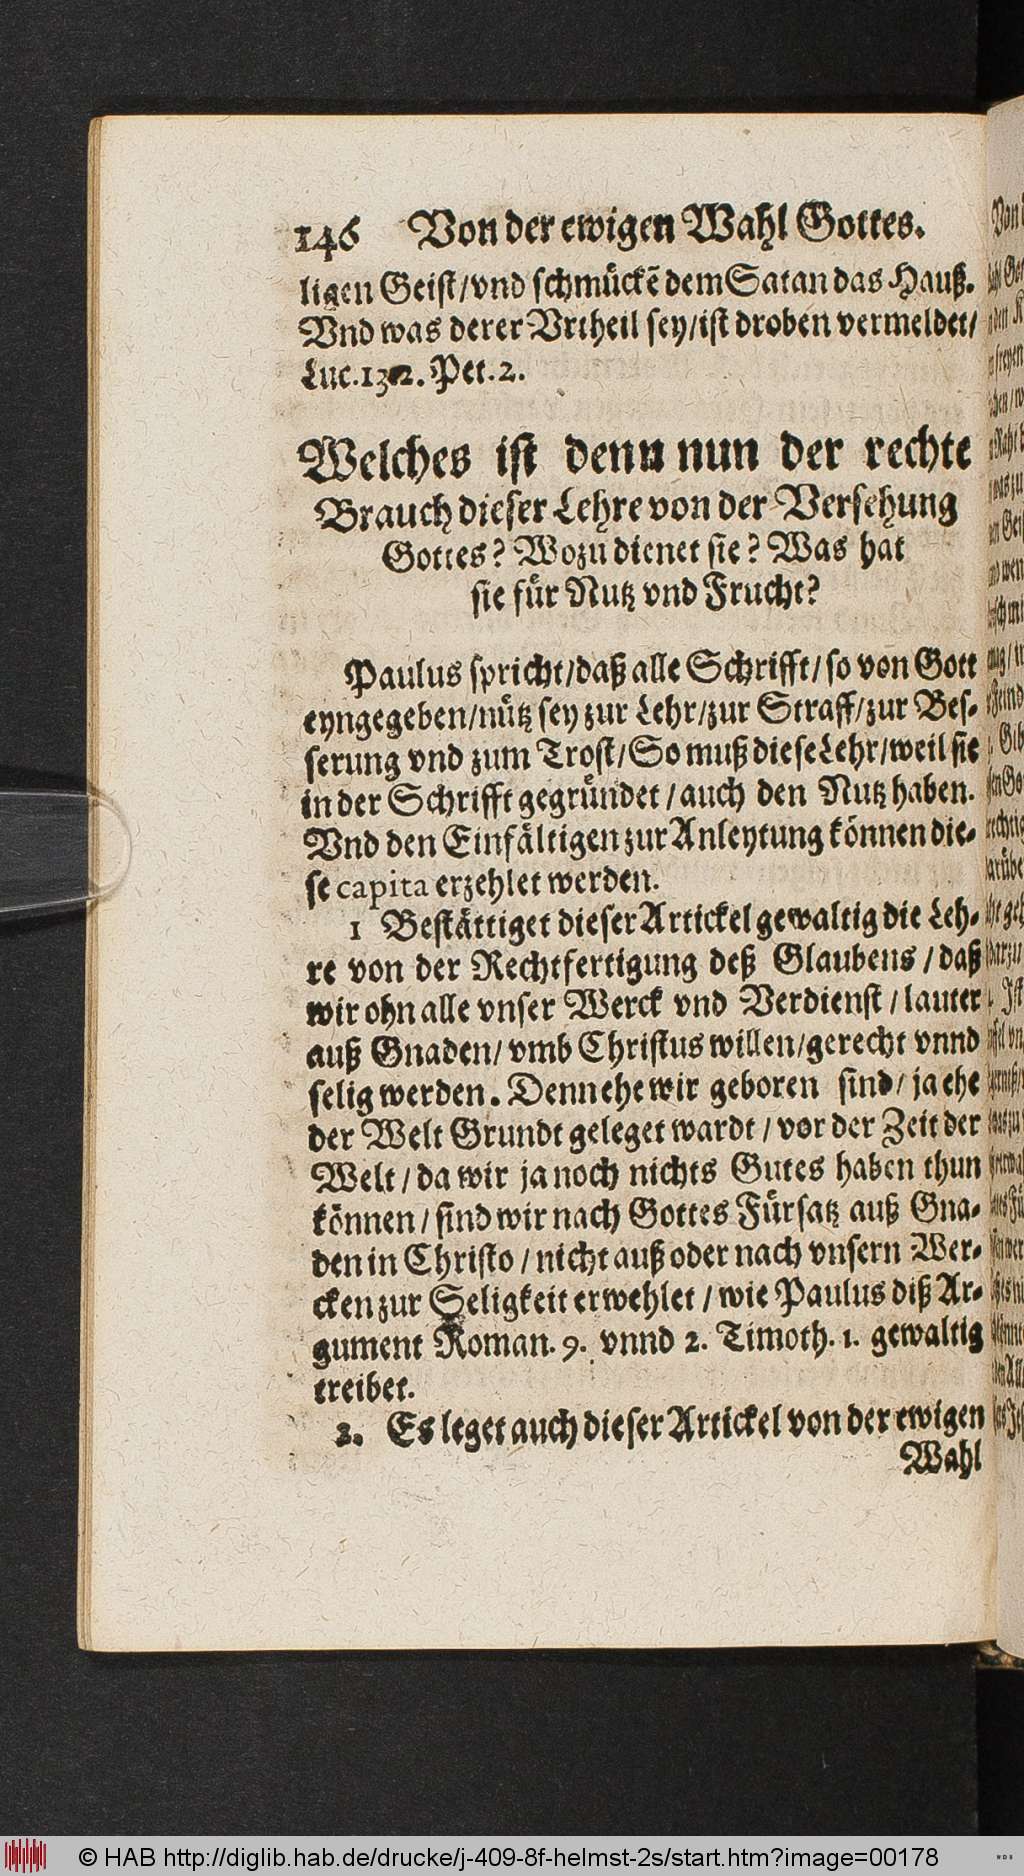 146 Von der ewigen Wahl Gottes.
ligen Geist/vnd schmückē dem Satan das Hauß.
Vnd was derer Vrtheil sey/ist droben vermeldet/
Luc. Pet. 2.
Welches ist denn nun der rechte
Brauch dieser Lehre von der Versehung
Gottes? Wozu dienet sie? Was hat
sie für Nutz vnd Frucht?
Paulus spricht/daß alle Schrifft/so von Gott
eyngegeben/nütz sey zur Lehr/zur Straff/zur Bes-
serung vnd zum Trost/So muß diese Lehr/weil sie
in der Schrifft gegründet/auch den Nutz haben.
Vnd den Einfältigen zur Anleytung können die-
se capita erzehlet werden.
1 Bestättiget dieser Artickel gewaltig die Leh-
re von der Rechtfertigung deß Glaubens/daß
wir ohn alle vnser Werck vnd Verdienst/lauter
auß Gnaden/vmb Christus willen/gerecht vnnd
selig werden. Denn ehe wir geboren sind/ja ehe
der Welt Grundt geleget wardt/vor der Zeit der
Welt/da wir ja noch nichts Gutes haben thun
können/sind wir nach Gottes Fürsatz auß Gna-
den in Christo/nicht auß oder nach vnsern Wer-
cken zur Seligkeit erwehlet/wie Paulus diß Ar-
gument Roman. 9. vnnd 2. Timoth. 1. gewaltig
treibet.
2. Es leget auch dieser Artickel von der ewigen
Wahl
© HAB http://diglib.hab.de/drucke/j-409-8f-helmst-2s/start.htm?image=00178